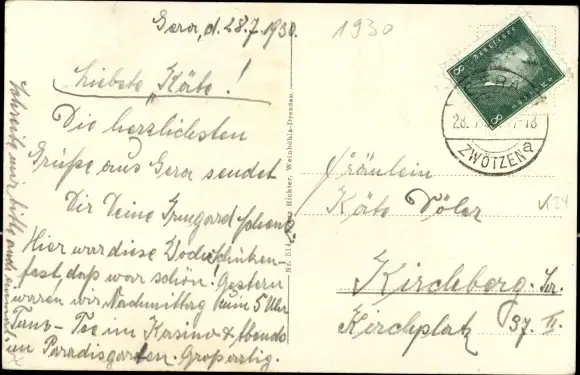 Gera, d. 28.7.1930.
Liebste „Käte"!
Die herzlichsten
Grüße aus Gera sendet
Dir Deine Irmgard
Hier war diese Woche Schützen-
fest, daß war schön. Gestern
waren wir Nachmittag um 5 Uhr
Tanz-Tee im Kasino & Abends
im Paradisgarten. Großartig.
Schreib mir bitte auch
1930
Deutsches Reich
8
8
GERA
28.7. 17-18
ZWÖTZEN a
Richter, Weinböhla-Dresden.
Nr. 514
Fräulein
Käte
Kirchberg Sa.
Kirchplatz 37. II.